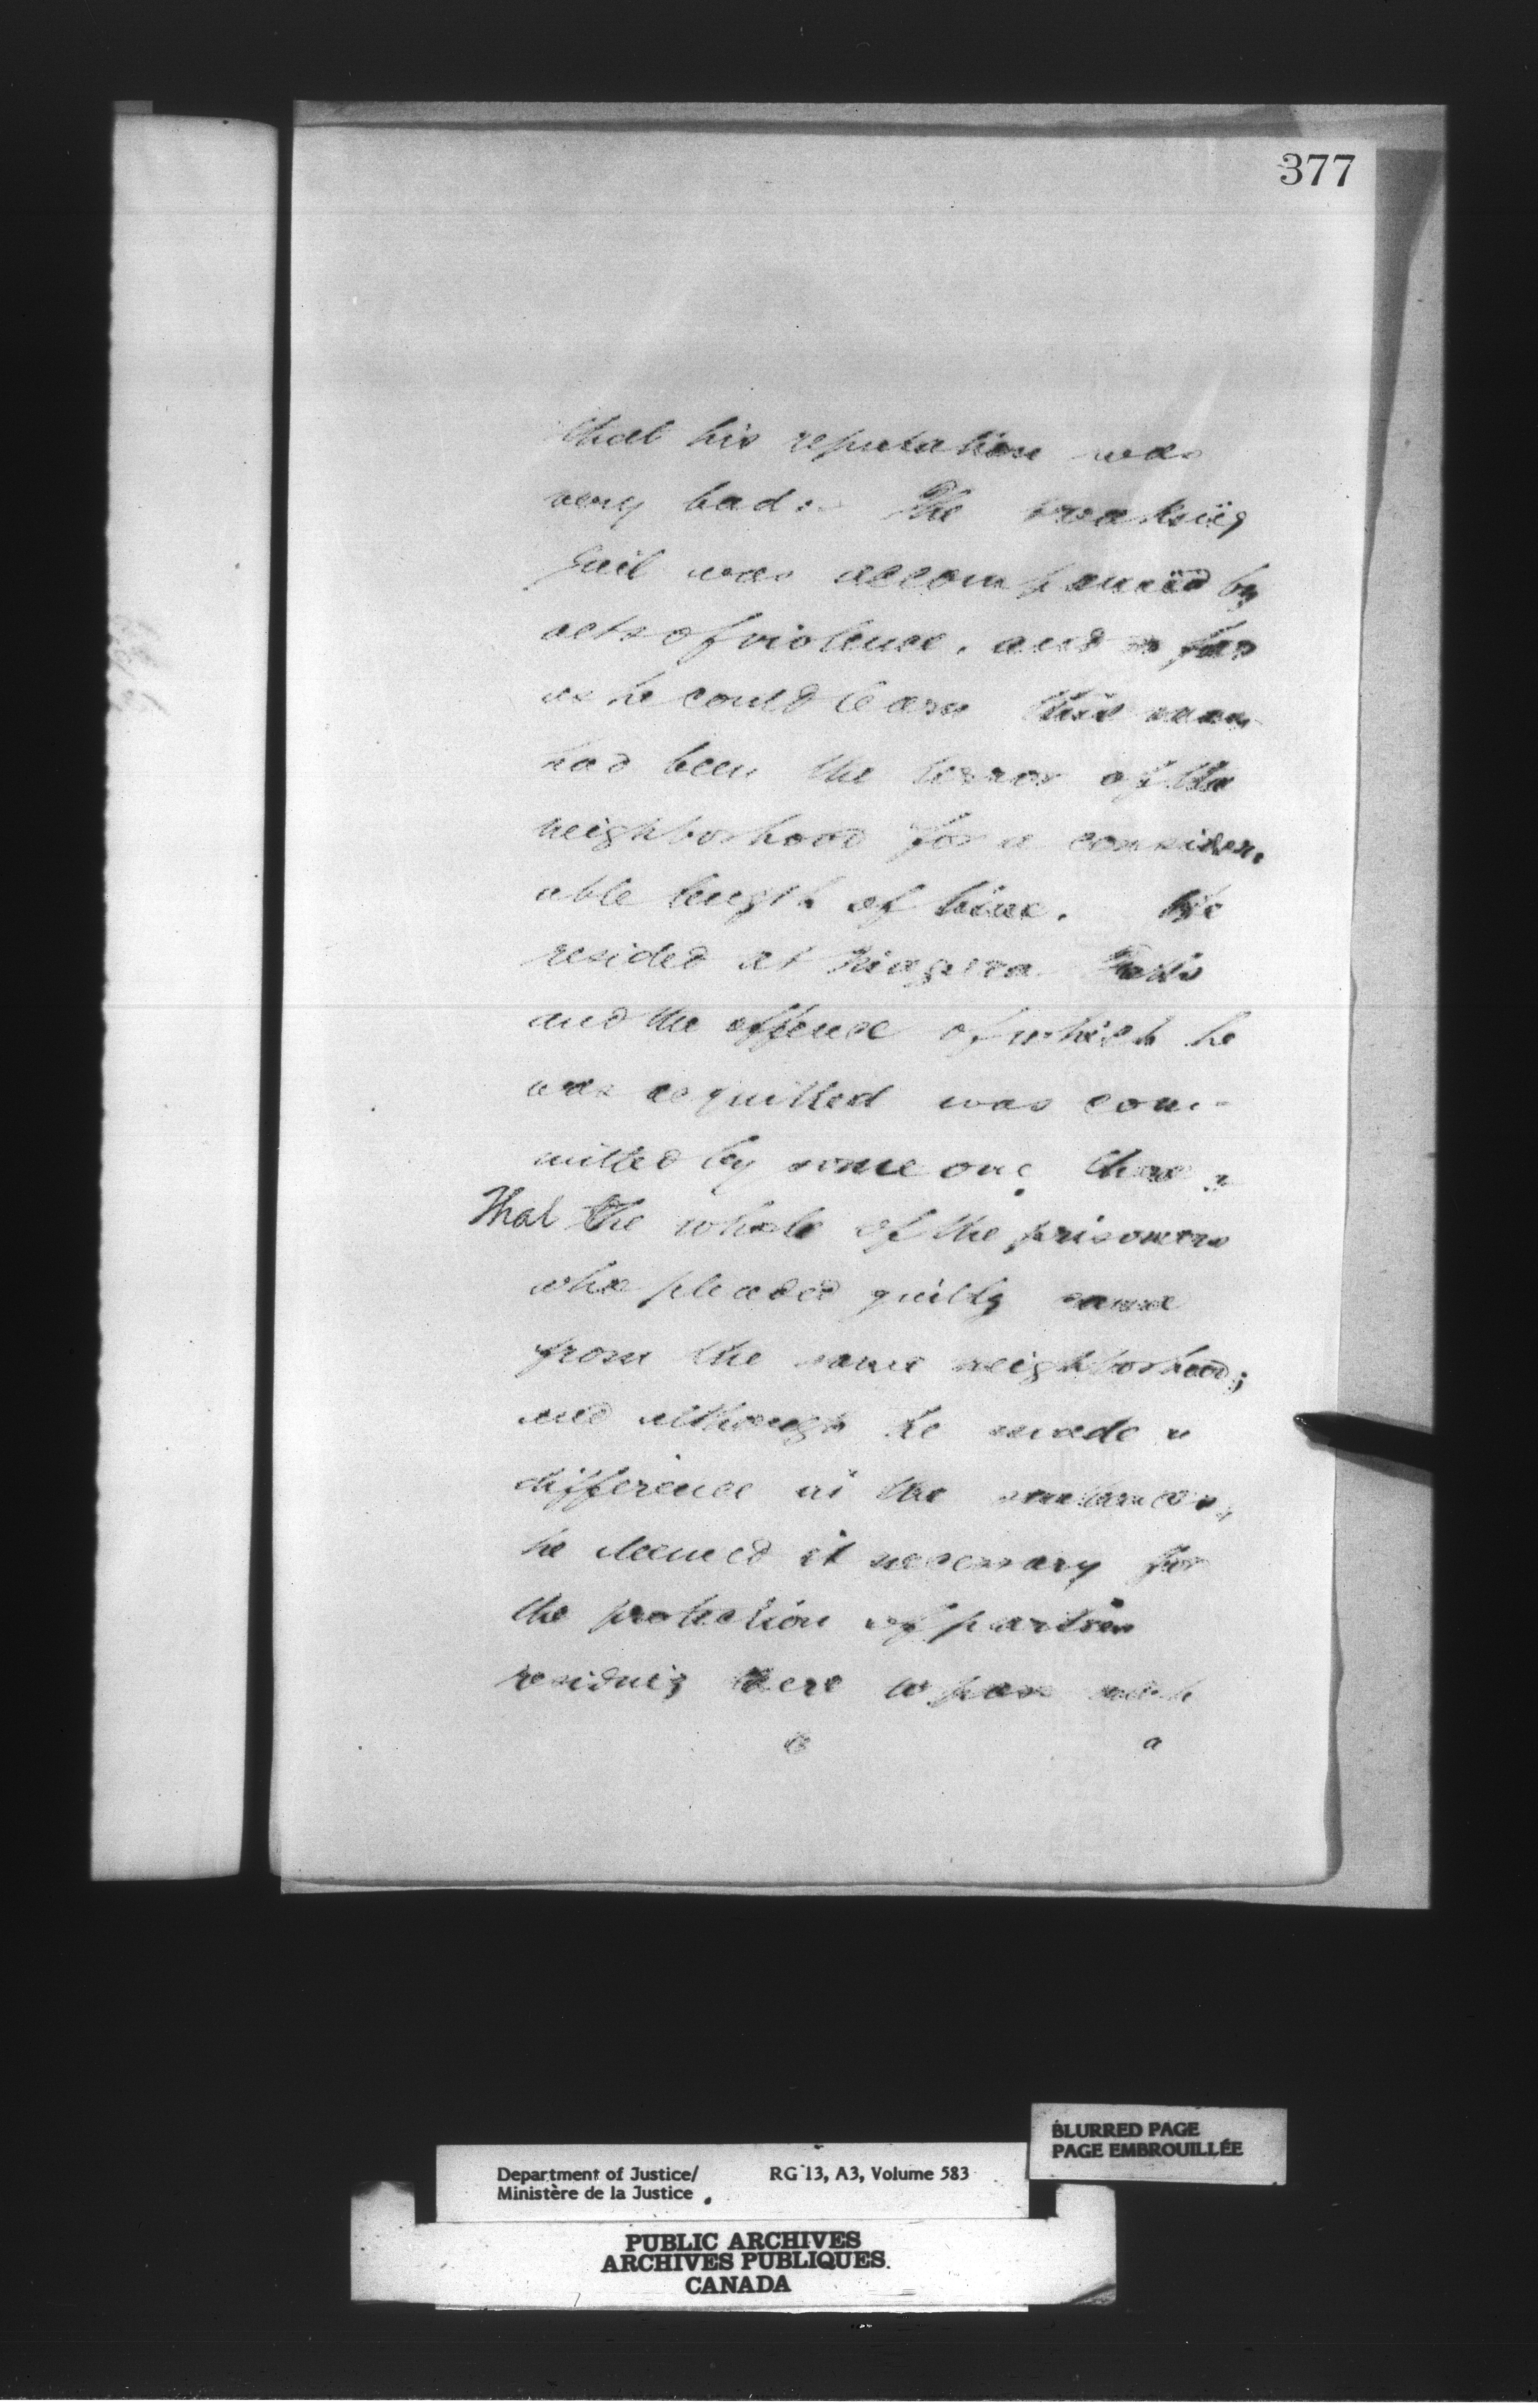 377
that his reputation was
very bad. The breaking
Gail was accompanied by
acts of violence. and so far
as he could learn this man
had been the terror of the
neighborhood for a consider-
able length of time. He
resided at Niagara Falls
and the offence of which he
was acquitted was com-
mitted by some one there.
That the whole of the prisoners
who pleaded guilty came
from the same neighborhood;
and although he made a
difference in the sentences,
he deemed it necessary for
the protection of parties
residing there to pass such
a
BLURRED PAGE
PAGE EMBROUILLÉE
Department of Justice/ RG 13, A3, Volume 583
Ministère de la Justice
PUBLIC ARCHIVES
ARCHIVES PUBLIQUES
CANADA